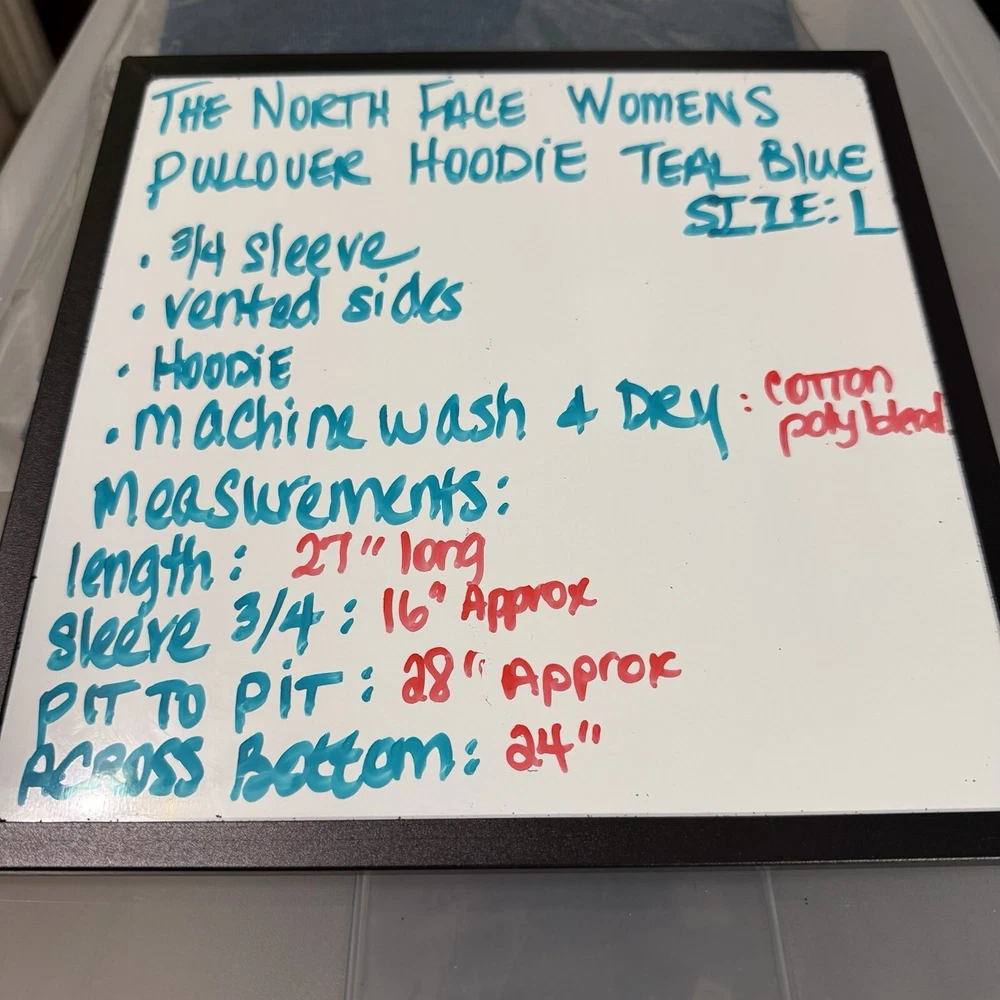 THE NORTH FACE WOMENS
PULLOVER HOODIE TEAL BLUE
SIZE: L
• 3/4 sleeve
• vented sides
• HOODIE
• machine wash & DRY : COTTON
poly blend
Measurements:
length: 27" long
Sleeve 3/4: 16" Approx
PIT TO PIT: 28" Approx
Across Bottom: 24"